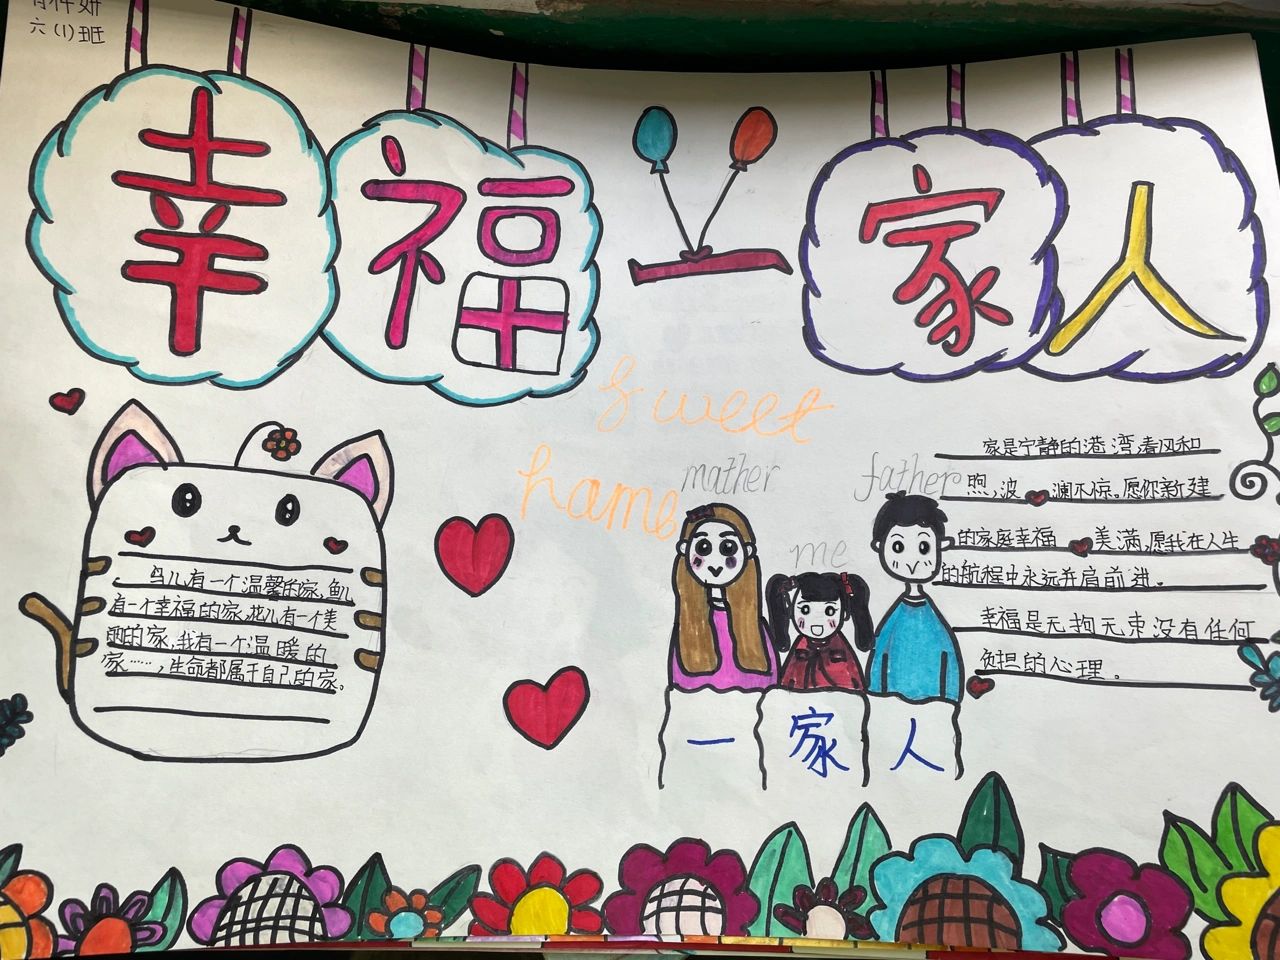 六(1)班
幸福一家人
sweet
hame
mather
father
me
鸟儿有一个温馨的家,鱼儿
有一个幸福的家,花儿有一个美
丽的家,我有一个温暖的
家……,生命都属于自己的家。
家是宁静的港湾,春风和
煦,波澜不惊。愿你新建
的家庭幸福美满,愿我在人生
的航程中永远并肩前进。
幸福是无拘无束没有任何
负担的心理。
一家人